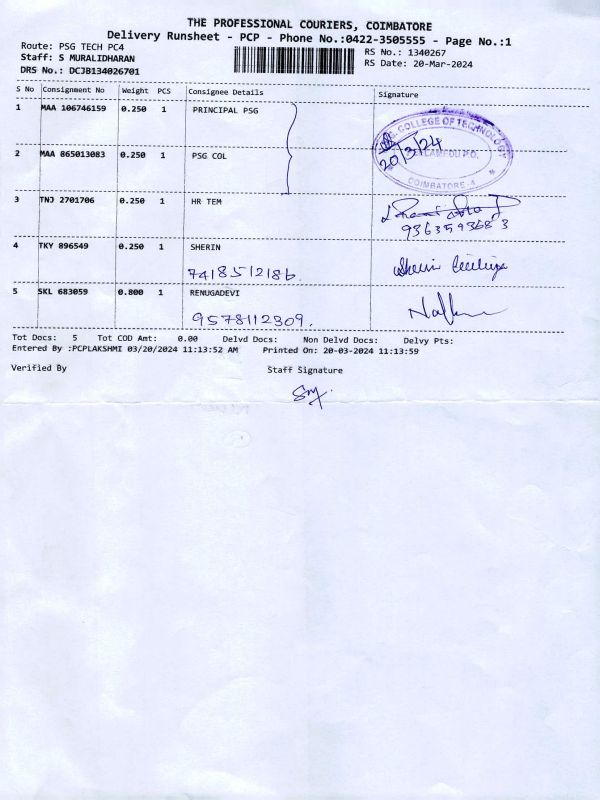 THE PROFESSIONAL COURIERS, COIMBATORE
Delivery Runsheet - PCP - Phone No.:0422-3505555 - Page No.:1
Route: PSG TECH PC4
RS No.: 1340267
Staff: S MURALIDHARAN
RS Date: 20-Mar-2024
DRS No.: DCJB134026701
S No Consignment No Weight PCS Consignee Details Signature
1 MAA 106746159 0.250 1 PRINCIPAL PSG
COLLEGE OF TECHNOLOGY
20/3/24
COIMBATORE-4
2 MAA 865013083 0.250 1 PSG COL
3 TNJ 2701706 0.250 1 HR TEM
9363593683
4 TKY 896549 0.250 1 SHERIN
7418512186 Sherin
5 SKL 683059 0.800 1 RENUGADEVI
9578112309.
Tot Docs: 5 Tot COD Amt: 0.00 Delvd Docs: Non Delvd Docs: Delvy Pts:
Entered By :PCPLAKSHMI 03/20/2024 11:13:52 AM Printed On: 20-03-2024 11:13:59
Verified By Staff Signature